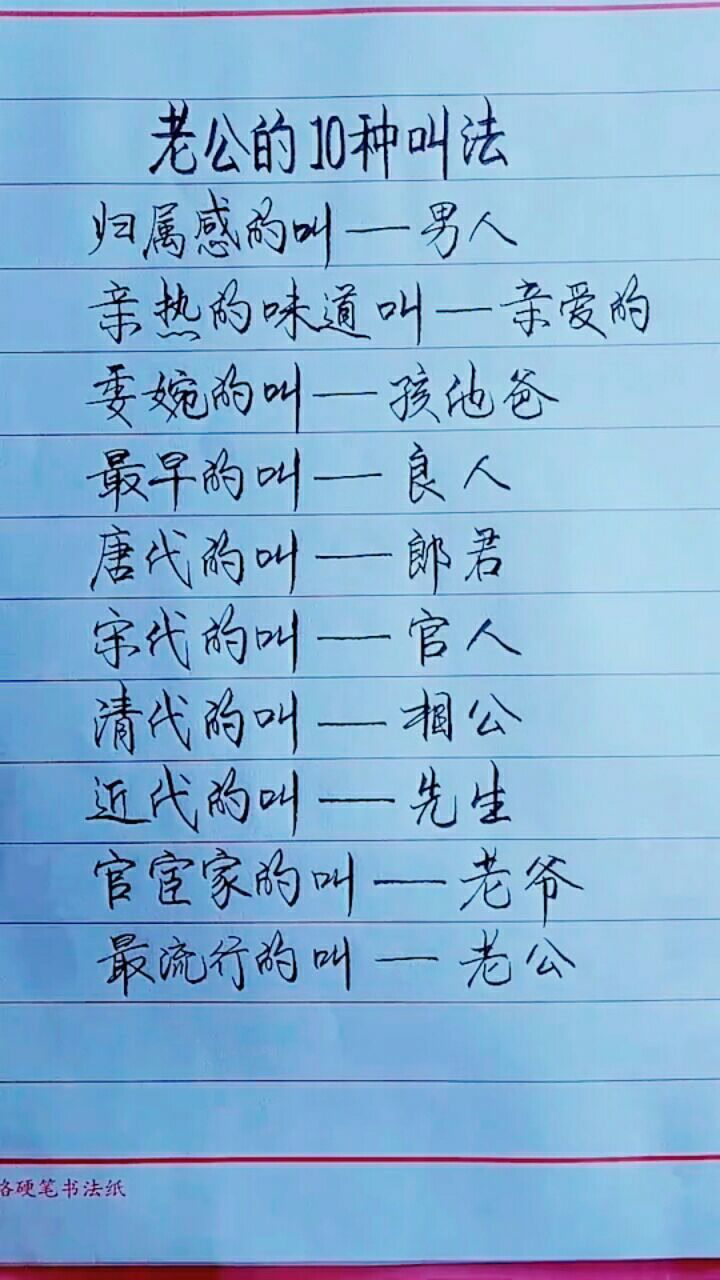 老公的10种叫法
归属感的叫——男人
亲热的味道叫——亲爱的
委婉的叫——孩他爸
最早的叫——良人
唐代的叫——郎君
宋代的叫——官人
清代的叫——相公
近代的叫——先生
官宦家的叫——老爷
最流行的叫——老公
格硬笔书法纸